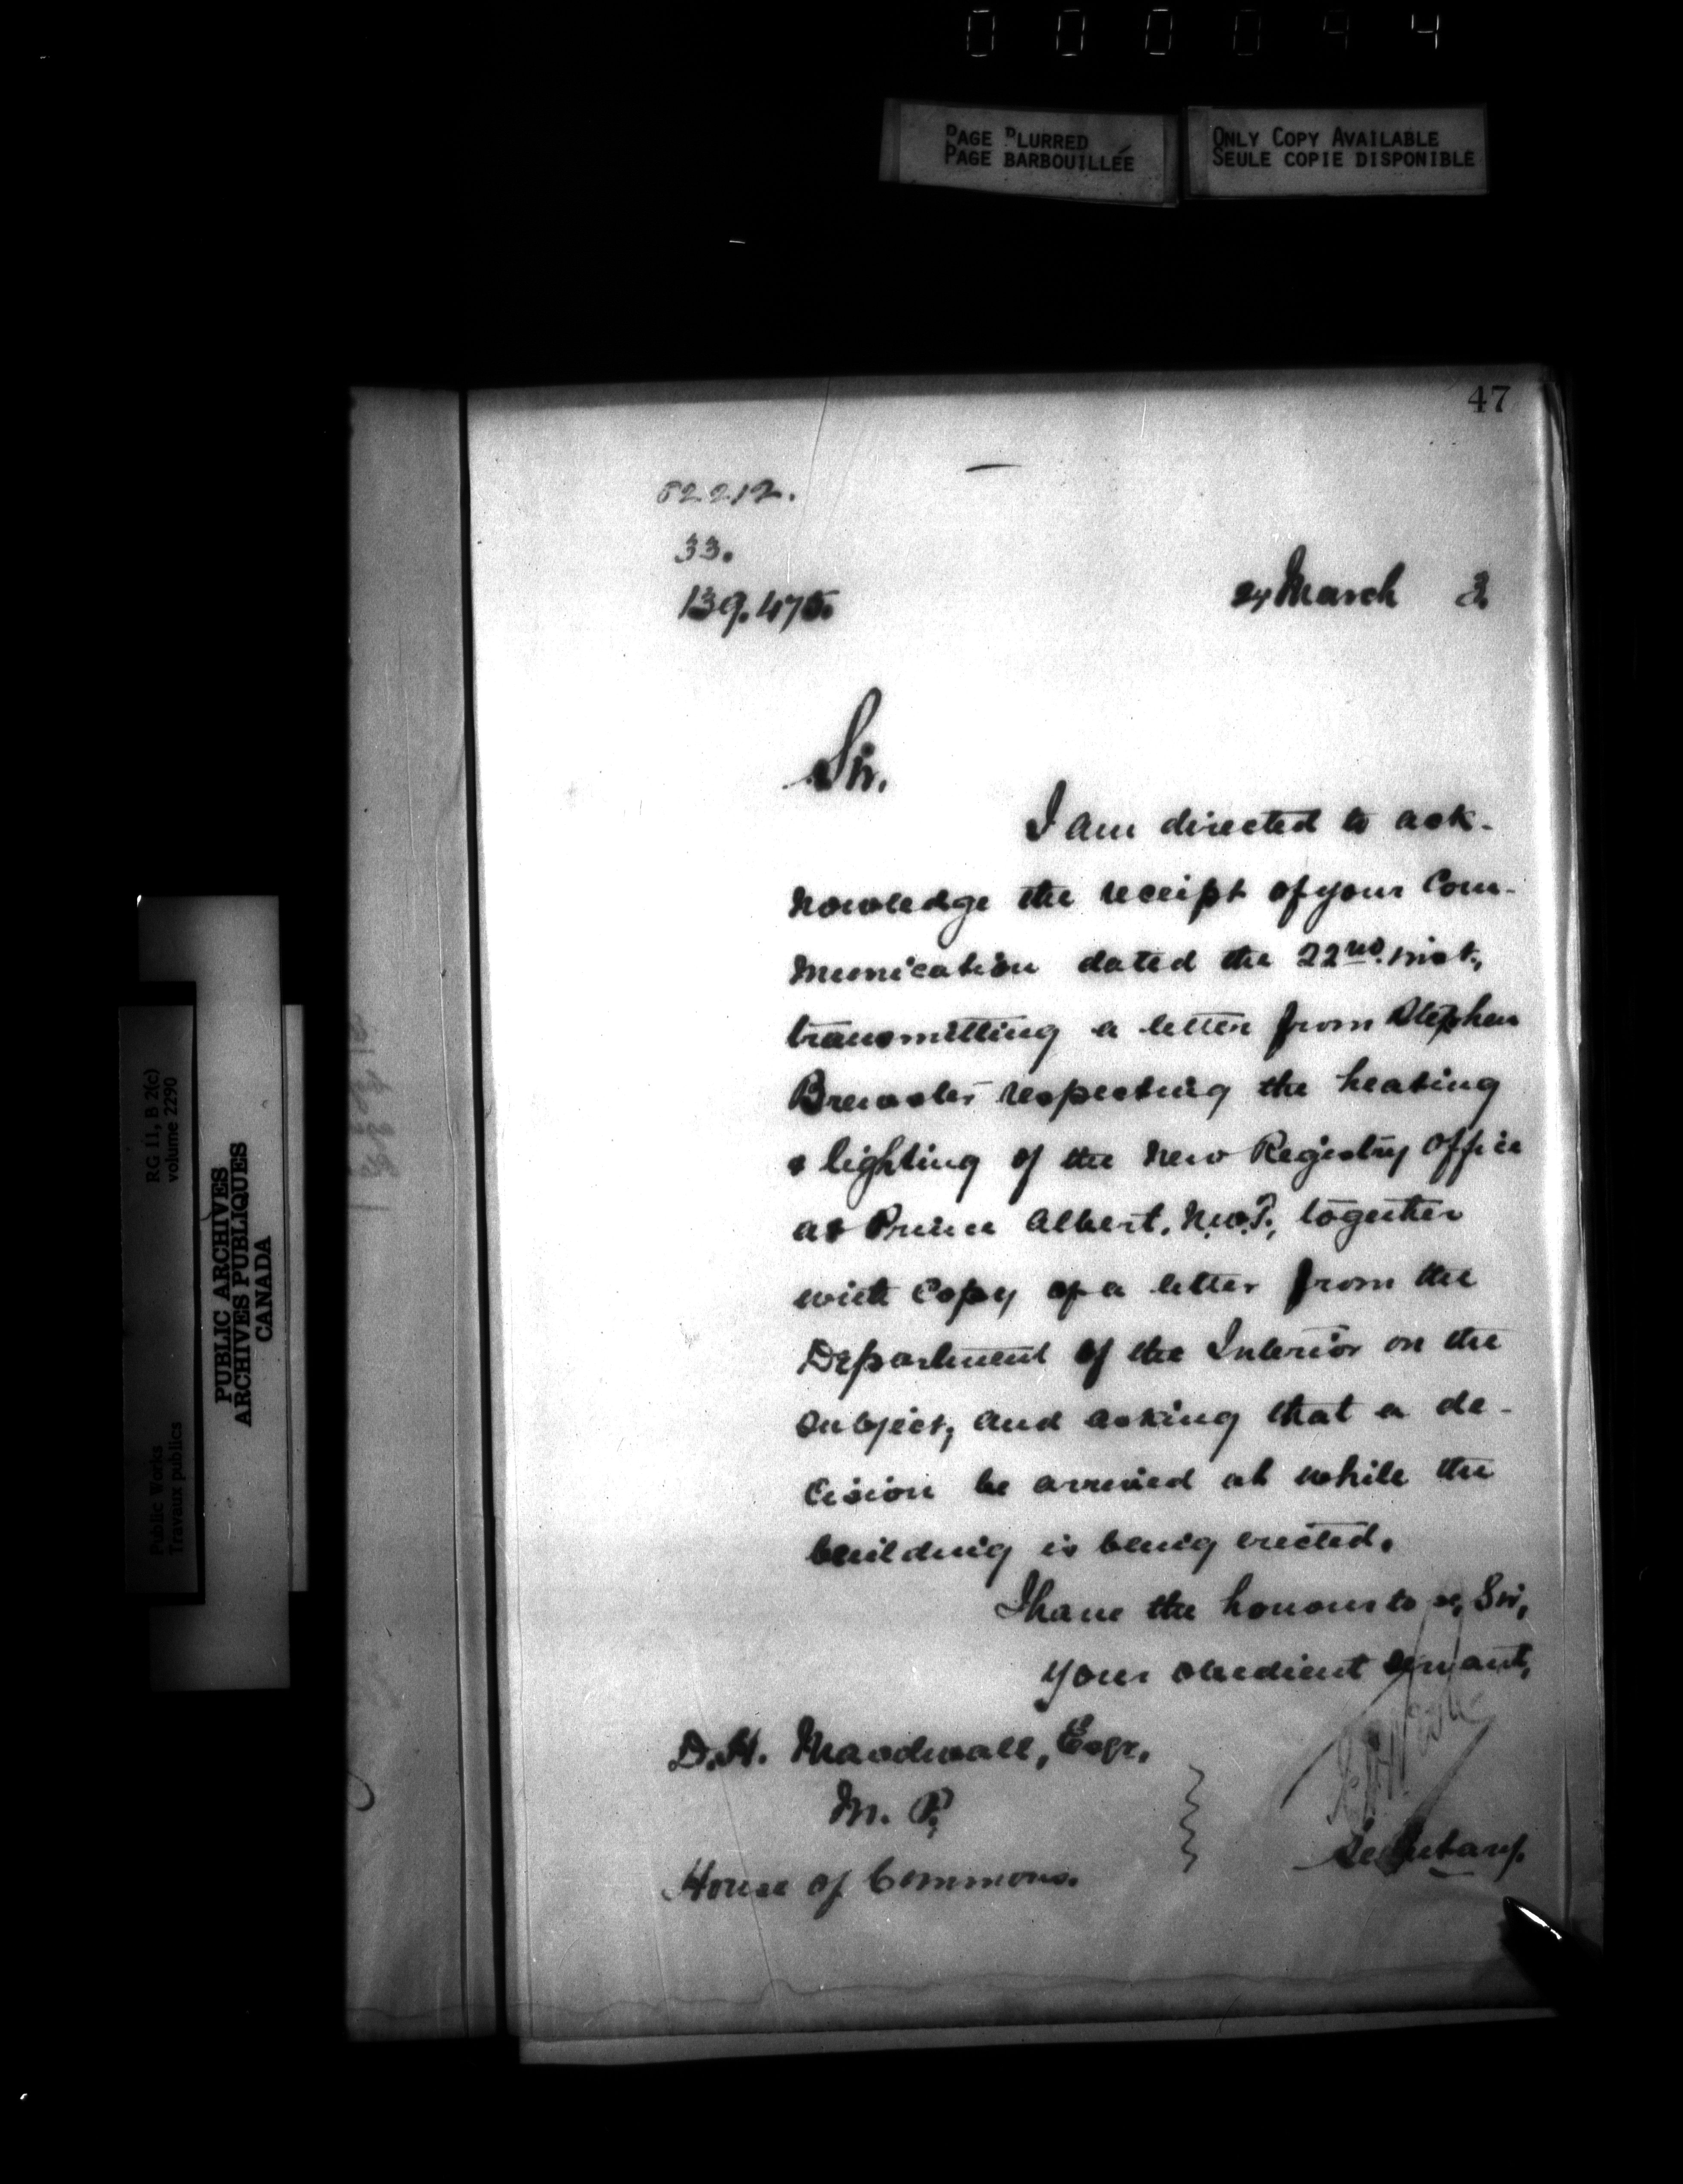 0 0 0 0 9 4
PAGE BLURRED
PAGE BARBOUILLÉE
ONLY COPY AVAILABLE
SEULE COPIE DISPONIBLE
47
82212.
33.
139.475.
24 March 3.
Sir,
I am directed to ack-
nowledge the receipt of your Com-
munication dated the 22nd. inst,
transmitting a letter from Stephen
Brewster respecting the heating
& lighting of the New Registry Office
at Prince Albert, N.W.T., together
with Copy of a letter from the
Department of the Interior on the
subject, and asking that a de-
cision be arrived at while the
building is being erected.
I have the honour to be, Sir,
Your obedient servant,
Secretary.
D.H. Macdowall, Esqr.
M. P.
House of Commons.
RG 11, B 2(c)
volume 2290
Public Works
Travaux publics
PUBLIC ARCHIVES
ARCHIVES PUBLIQUES
CANADA